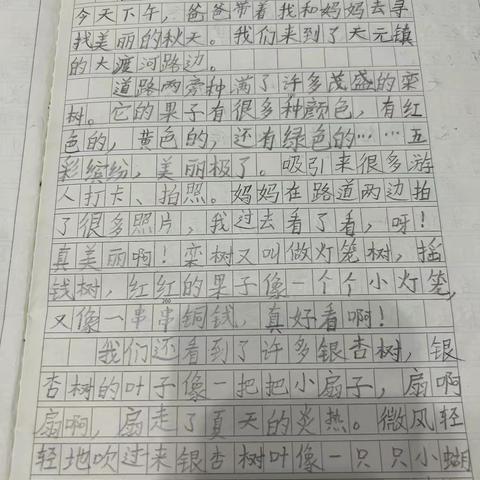 今天下午，爸爸带着我和妈妈去寻
找美丽的秋天。我们来到了天元镇
的大渡河路边。
道路两旁种满了许多茂盛的栾
树。它的果子有很多种颜色，有红
色的，黄色的，还有绿色的……五
彩缤纷，美丽极了。吸引来很多游
人打卡、拍照。妈妈在路道两边拍
了很多照片，我过去看了看，呀！
真美丽啊！栾树又叫做灯笼树，摇
钱树，红红的果子像一个个小灯笼，
又像一串串铜钱，真好看啊！
我们还看到了许多银杏树，银
杏树的叶子像一把把小扇子，扇啊
扇啊，扇走了夏天的炎热。微风轻
轻地吹过来银杏树叶像一只只小蝴